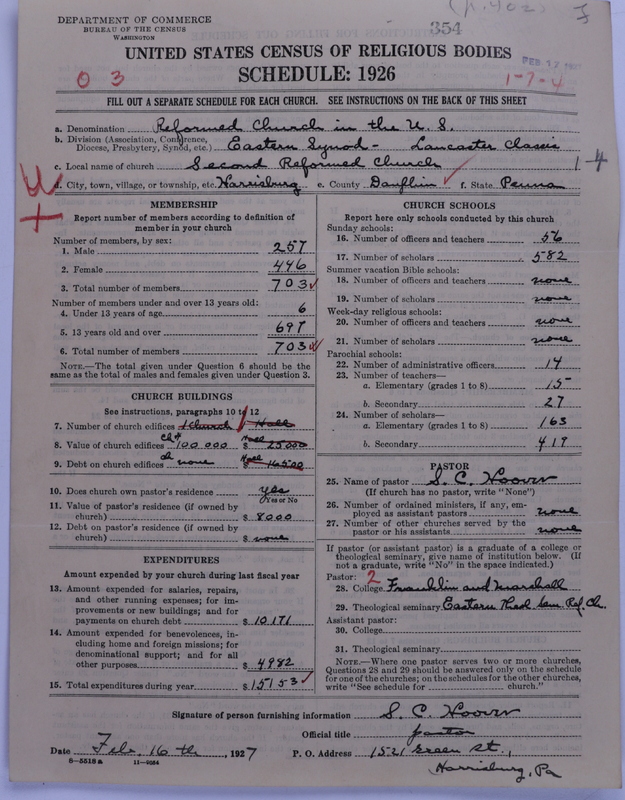 (p. 402) F
DEPARTMENT OF COMMERCE
BUREAU OF THE CENSUS
WASHINGTON
354
UNITED STATES CENSUS OF RELIGIOUS BODIES
FEB 17
SCHEDULE: 1926
0 3
1-7-4
FILL OUT A SEPARATE SCHEDULE FOR EACH CHURCH. SEE INSTRUCTIONS ON THE BACK OF THIS SHEET
a. Denomination Reformed Church in the U. S.
b. Division (Association, Conference, Diocese, Presbytery, Synod, etc.) Eastern Synod - Lancaster Classis
c. Local name of church Second Reformed Church 1-4
d. City, town, village, or township, etc. Harrisburg e. County Dauphin f. State Penna
MEMBERSHIP
Report number of members according to definition of
member in your church
Number of members, by sex:
1. Male 257
2. Female 446
3. Total number of members 703
Number of members under and over 13 years old:
4. Under 13 years of age 6
5. 13 years old and over 697
6. Total number of members 703
NOTE.—The total given under Question 6 should be the
same as the total of males and females given under Question 3.
CHURCH BUILDINGS
See instructions, paragraphs 10 to 12
7. Number of church edifices 1 Church 1 Hall
8. Value of church edifices Ch 100 000 $ Hall 25000
9. Debt on church edifices ch none $ Hall 16500
10. Does church own pastor's residence yes
Yes or No
11. Value of pastor's residence (if owned by
church) $ 8000
12. Debt on pastor's residence (if owned by
church) $ none
EXPENDITURES
Amount expended by your church during last fiscal year
13. Amount expended for salaries, repairs,
and other running expenses; for im-
provements or new buildings; and for
payments on church debt $ 10171
14. Amount expended for benevolences, in-
cluding home and foreign missions; for
denominational support; and for all
other purposes $ 4982
15. Total expenditures during year $ 15153
CHURCH SCHOOLS
Report here only schools conducted by this church
Sunday schools:
16. Number of officers and teachers 56
17. Number of scholars 582
Summer vacation Bible schools:
18. Number of officers and teachers none
19. Number of scholars none
Week-day religious schools:
20. Number of officers and teachers none
21. Number of scholars none
Parochial schools:
22. Number of administrative officers 14
23. Number of teachers—
a. Elementary (grades 1 to 8) 15
b. Secondary 27
24. Number of scholars—
a. Elementary (grades 1 to 8) 163
b. Secondary 419
PASTOR
25. Name of pastor S. C. Hoover
(If church has no pastor, write "None")
26. Number of ordained ministers, if any, em-
ployed as assistant pastors none
27. Number of other churches served by the
pastor or his assistants none
If pastor (or assistant pastor) is a graduate of a college or
theological seminary, give name of institution below. (If
not a graduate, write "No" in the space indicated.)
Pastor: 2
28. College Franklin and Marshall
29. Theological seminary Eastern Theol Sem Ref. Ch.
Assistant pastor:
30. College
31. Theological seminary
NOTE.—Where one pastor serves two or more churches,
Questions 28 and 29 should be answered only on the schedule
for one of the churches; on the schedules for the other churches,
write "See schedule for church."
Signature of person furnishing information S. C. Hoover
Official title pastor
Date Feb. 16 th, 1927 P. O. Address 1521 Green St.,
8-5518 a 11-9664 Harrisburg, Pa